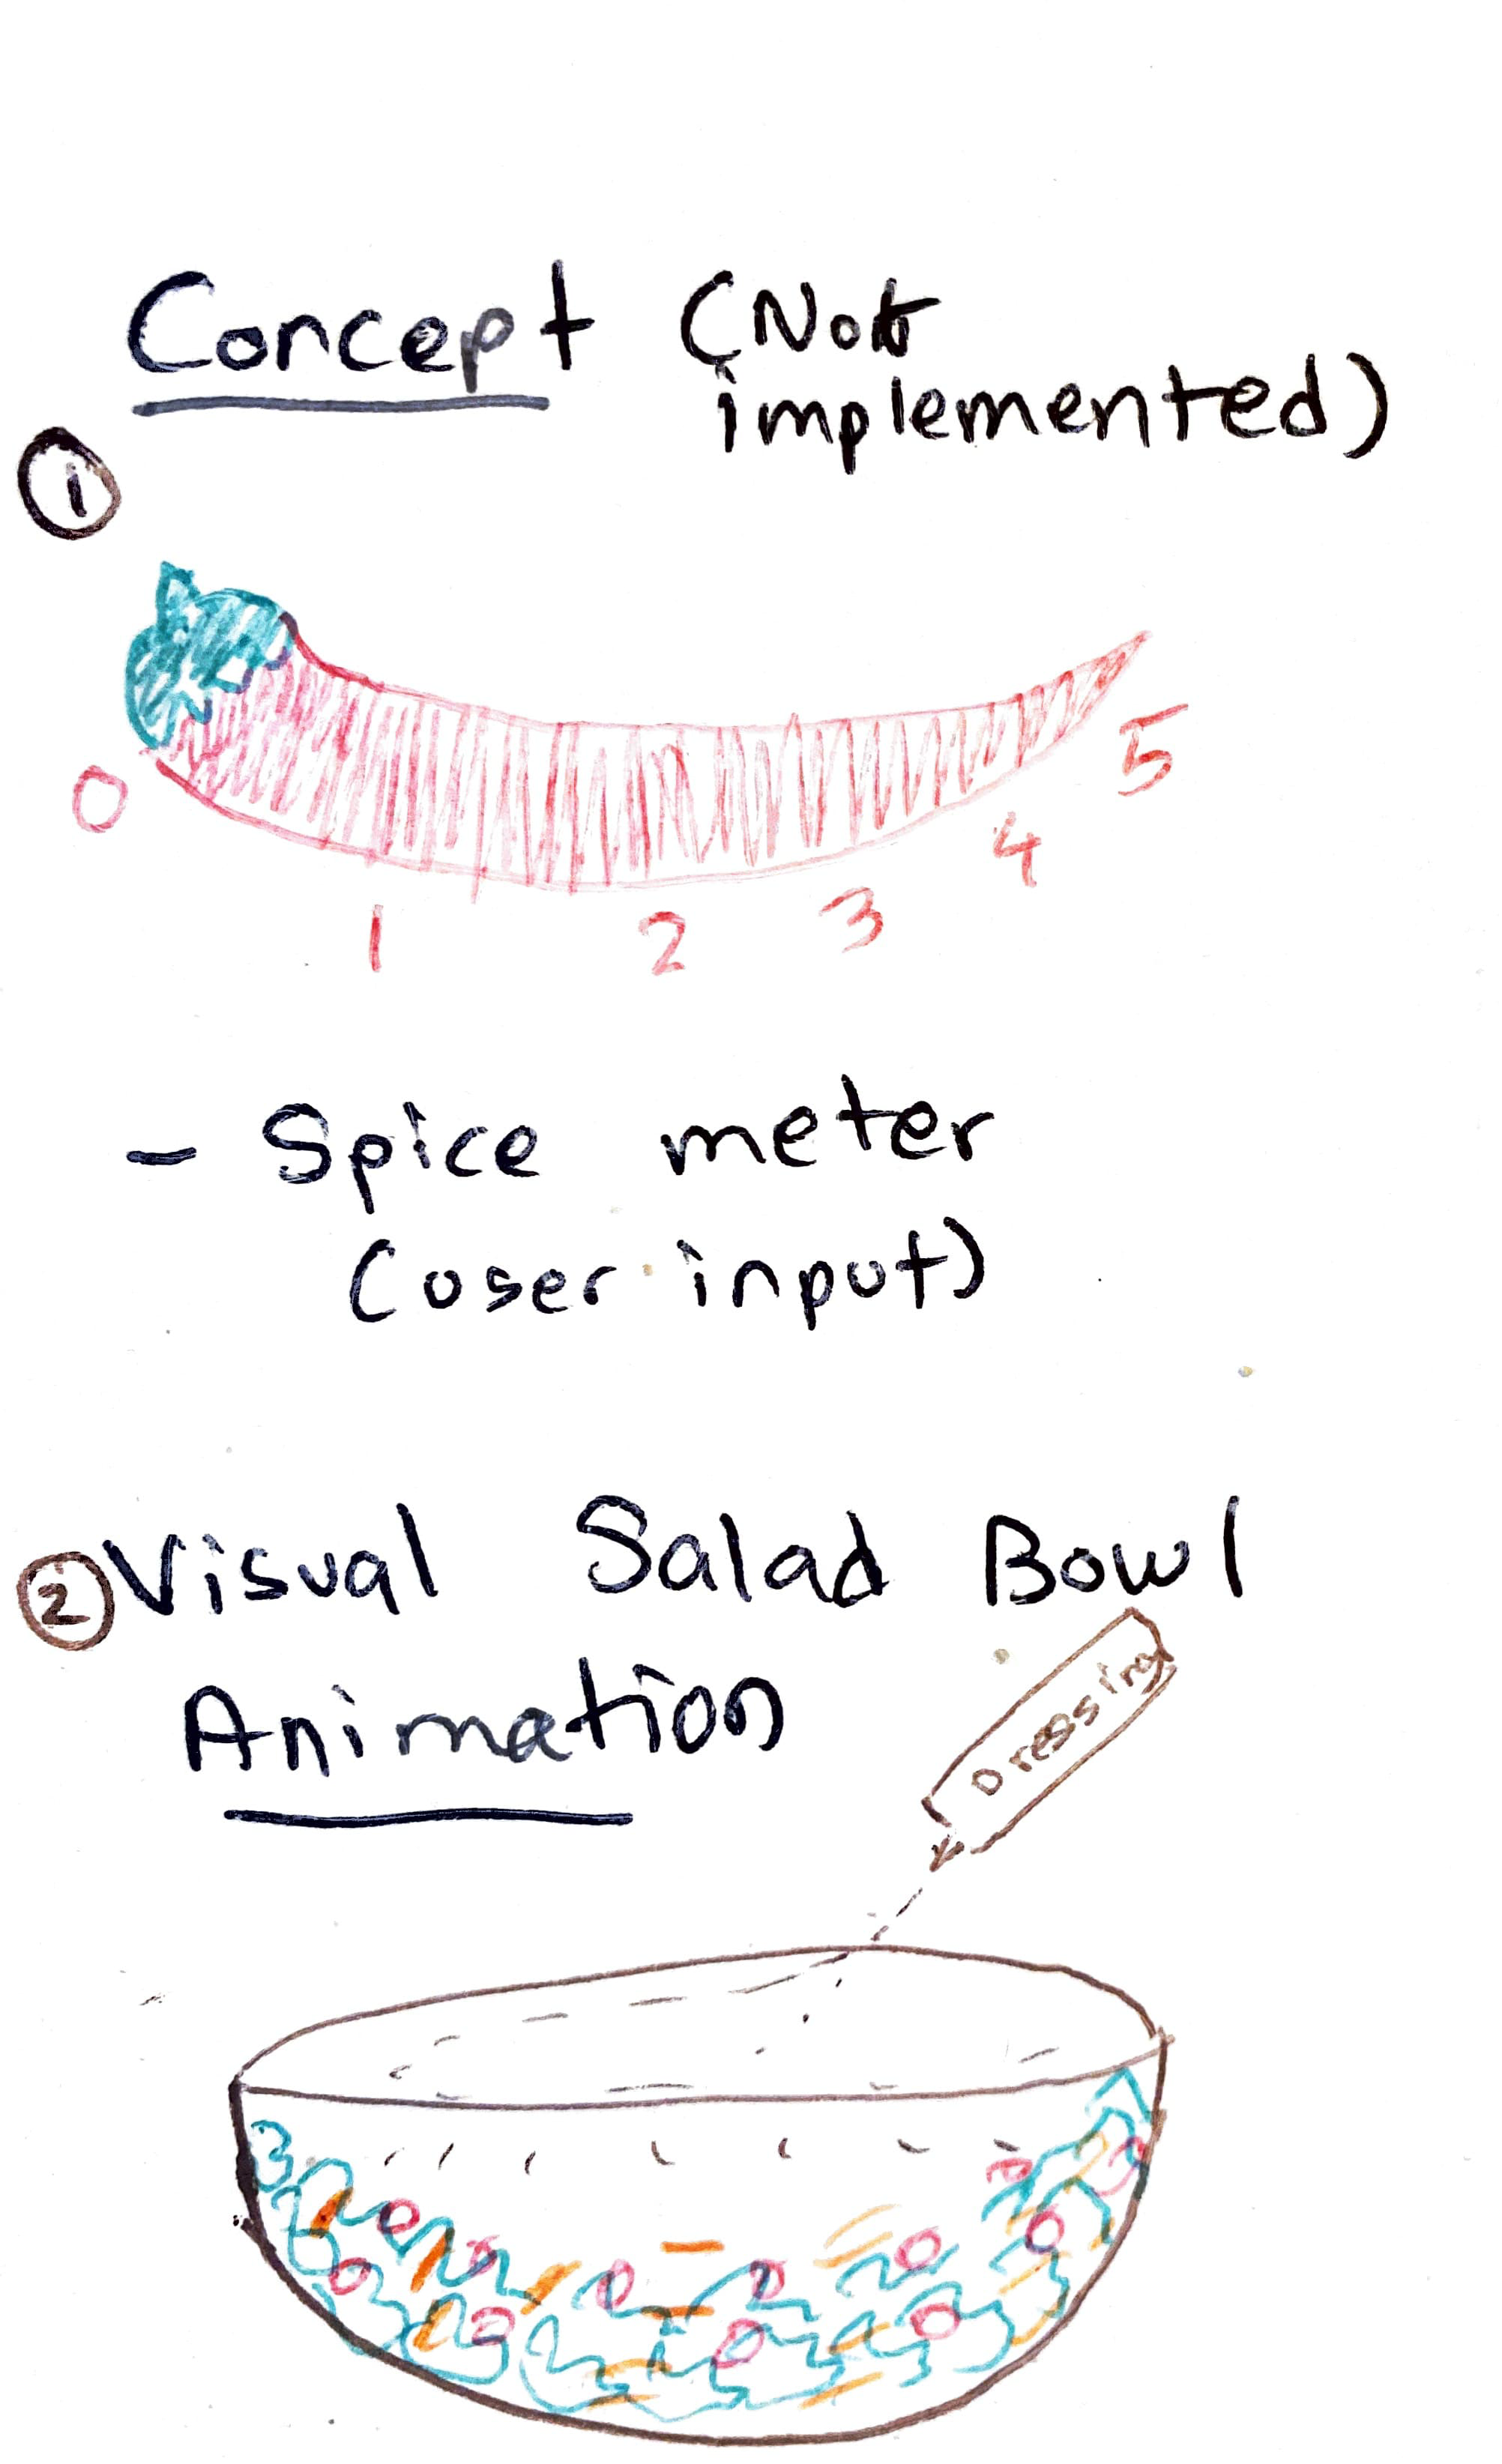 Concept (Not
implemented)
1
0
1
2
3
4
5
- Spice meter
(user input)
2 Visual Salad Bowl
Animation
Dressing